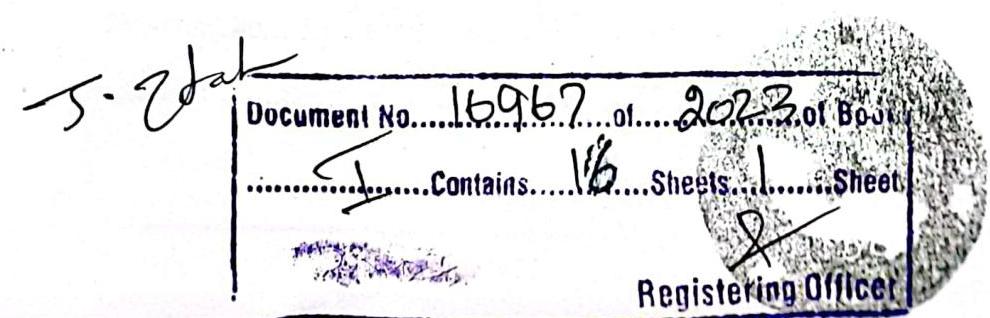 Document No.....16967.....of.....2023.of Book
.................I.......Contains.....16....Sheets...1.......Sheet
Registering Officer